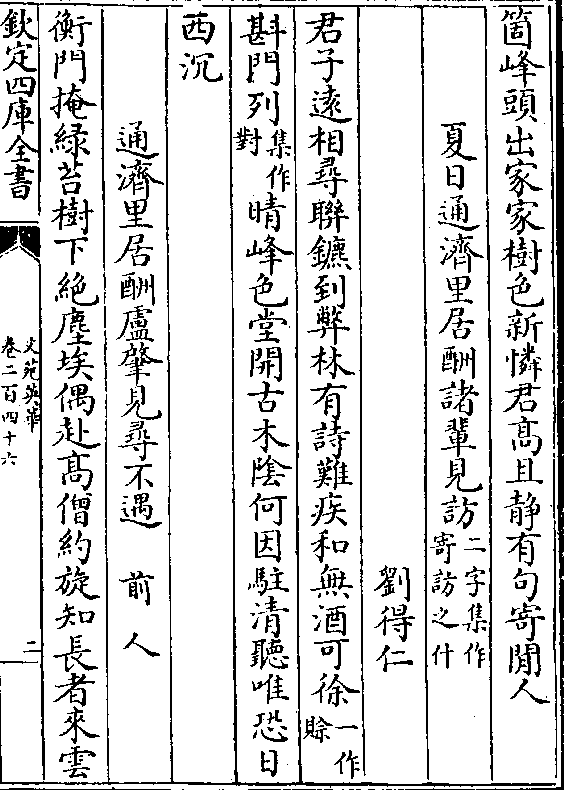 箇峰頭出家家樹色新憐君髙且静有句寄閒人
夏日通濟里居酬諸輩見訪二字集作寄訪之什
劉得仁
君子逺相尋聯鑣到弊林有詩難疾和無酒可徐一作賒
斟門列集作對晴峰色堂開古木陰何因駐清聽唯恐日
西沉
通濟里居酬盧肇見尋不遇 前人
衡門掩緑苔樹下絶塵埃偶赴髙僧約旋知長者來雲
欽定四庫全書
文苑英華
卷二百四十六
二